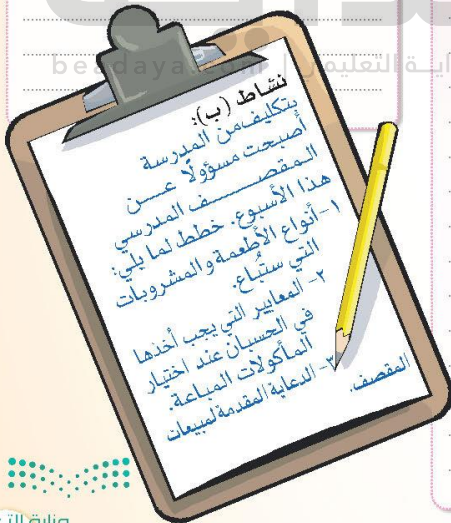 beadaya.com | بداية التعليمية
نشاط (ب):
بتكليف من المدرسة
أصبحت مسؤولًا عــن
المقصـــــف المدرسي
هذا الأسبوع. خطط لما يلي:
١- أنواع الأطعمة والمشروبات
التي ستُباع.
٢- المعايير التي يجب أخذها
في الحسبان عند اختيار
المأكولات المباعة.
٣- الدعاية المقدمة لمبيعات
المقصف.